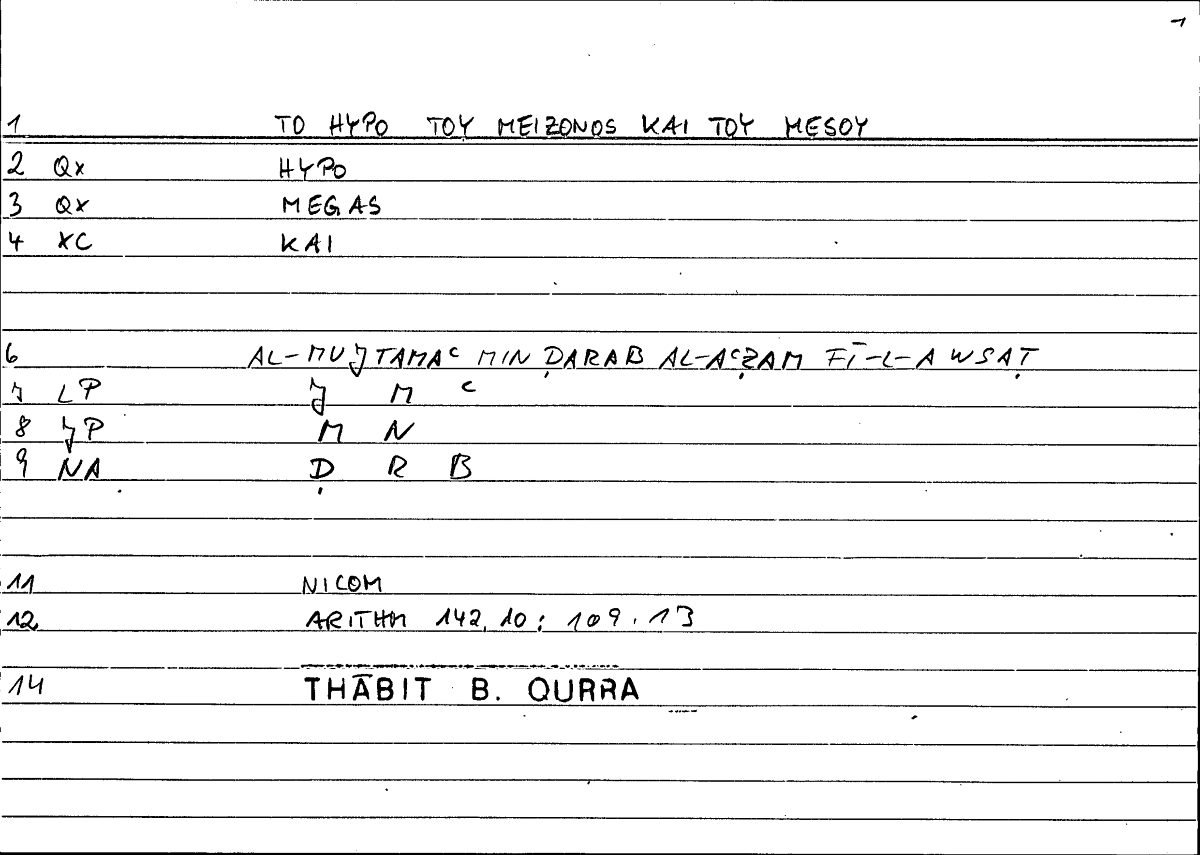 1
1 TO HYPO TOY MEIZONOS KAI TOY MESOY
2 Qx HYPO
3 Qx MEGAS
4 XC KAI
6 AL-MUJTAMAᶜ MIN ḌARAB AL-AᶜẒAM FĪ-L-AWSAṬ
7 LP J M ᶜ
8 JP M N
9 NA Ḍ R B
11 NICOM
12 ARITHM 142,10 : 109.13
14 THĀBIT B. QURRA